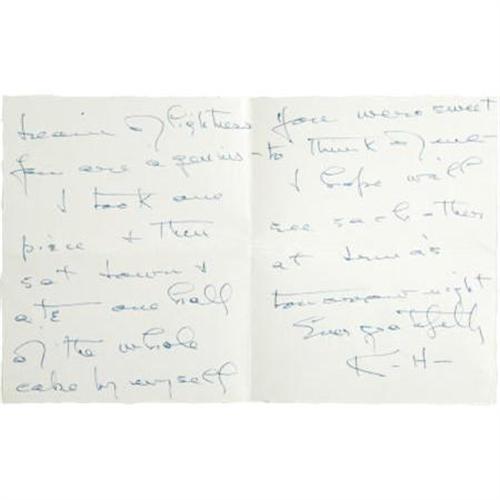 of lightness
You are a genius -
I took one
piece & then
sat down &
ate one half
of the whole
cake by myself
You were sweet
to think of me -
I hope we'll
see each other
at Irma's
tomorrow night
Ever gratefully
K - H -